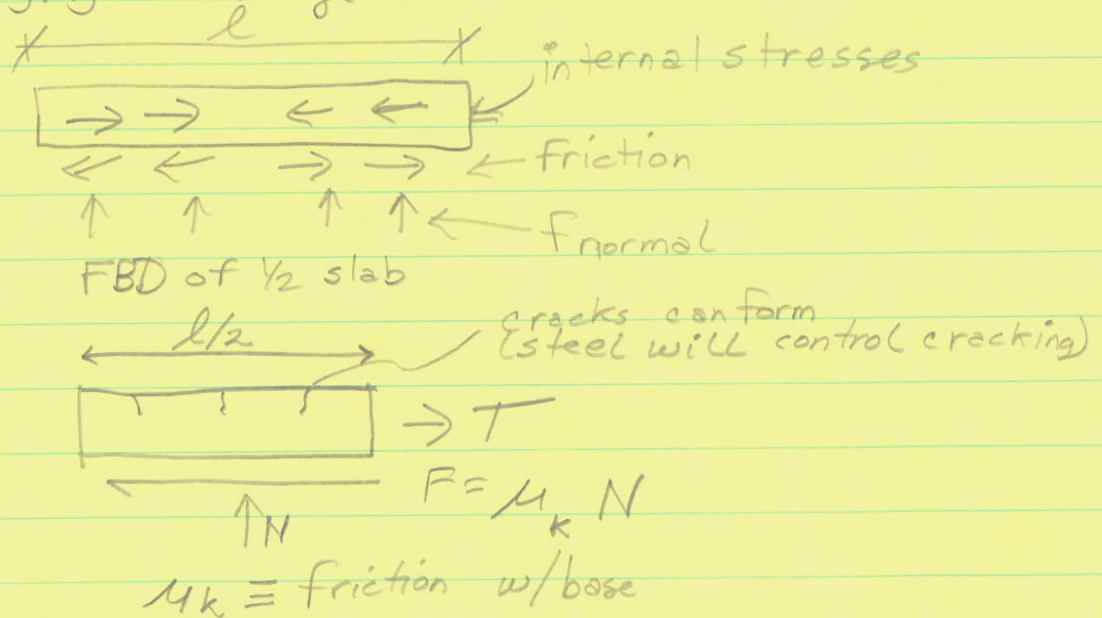 l
internal stresses
friction
fnormal
FBD of 1/2 slab
l/2
cracks can form
(steel will control cracking)
T
F = μk N
N
μk ≡ friction w/base